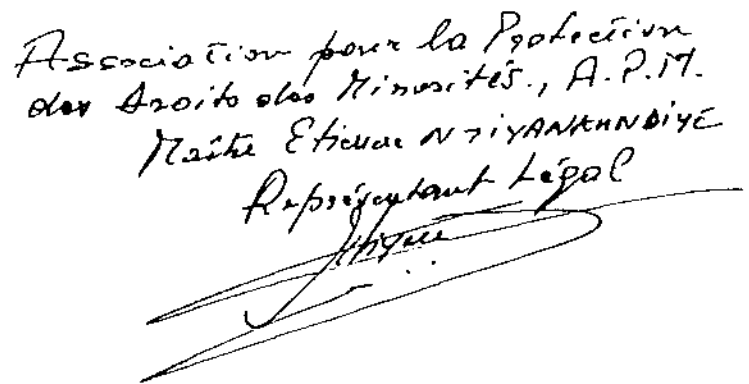 Association pour la Protection
des droits des Minorités., A.P.M.
Maître Etienne NTIYANKUNDIYE
Représentant Légal